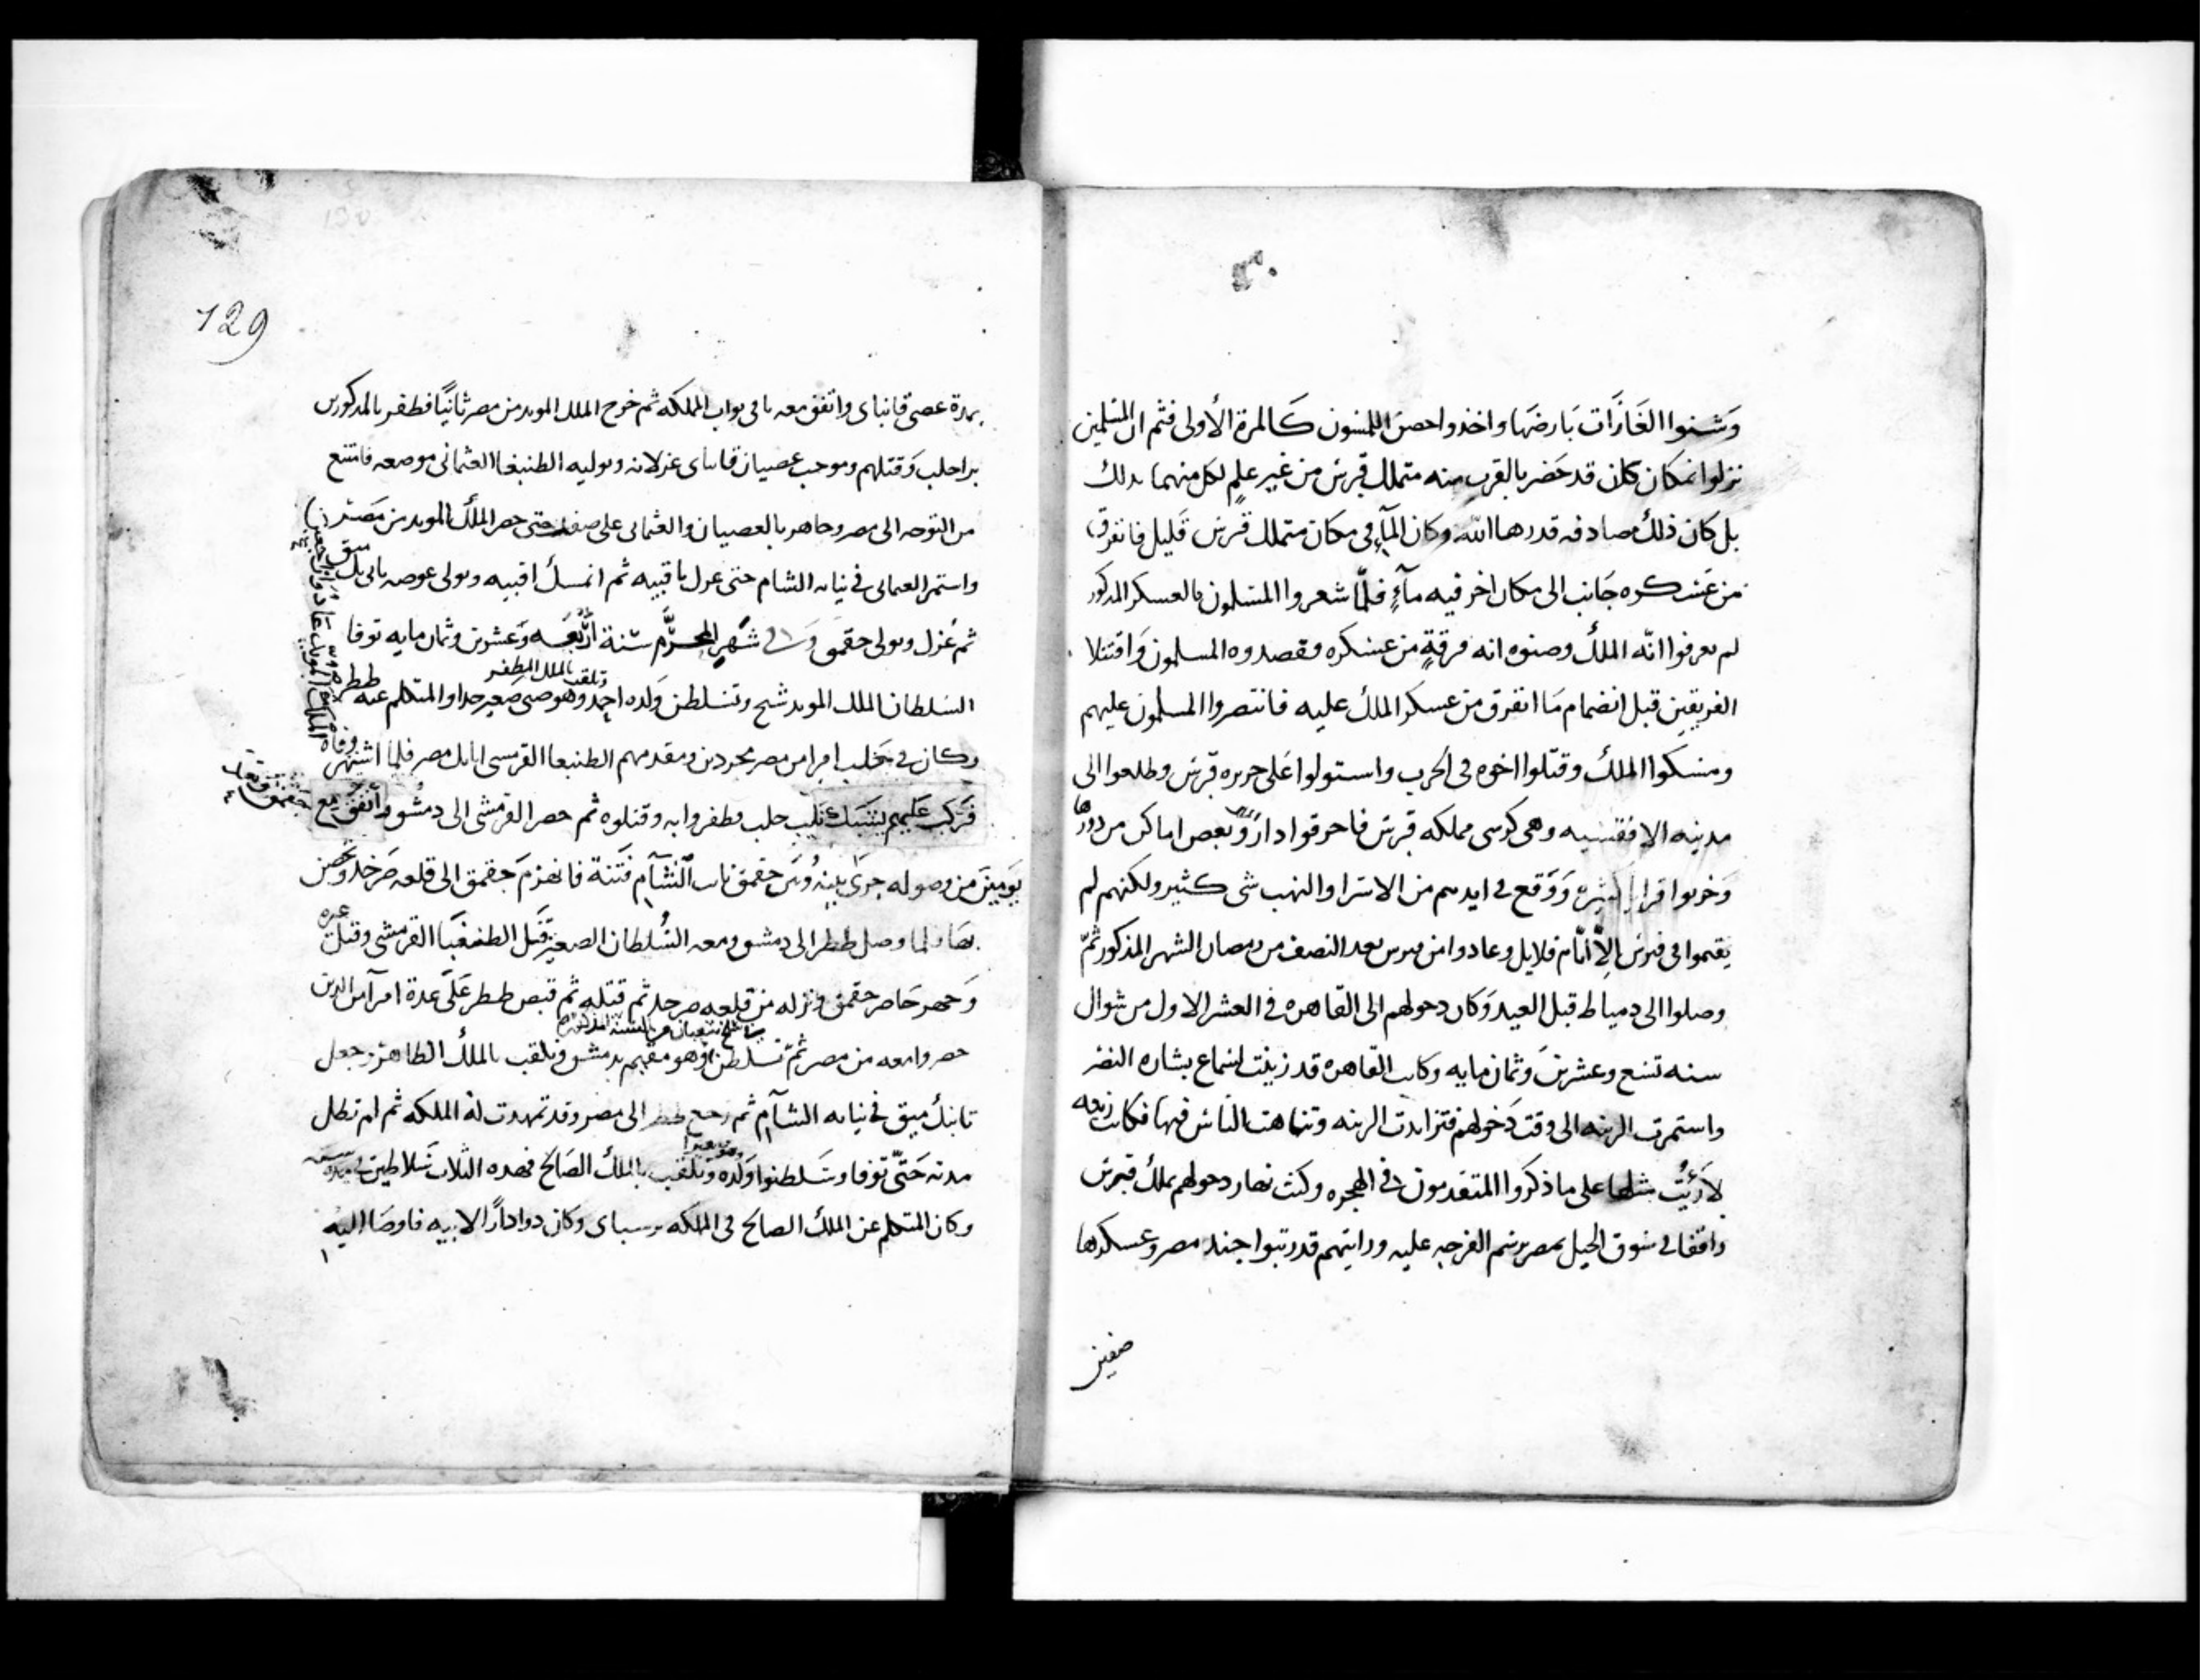 وَشنوا الغَارَات بَارضهَا واخذوا حصن اللمسون كَالمرة الأولى فثم ان المسلمين
نزلوا بمكان كان قد حَضر بالقربِ منه متملك قبرس من غير علمٍ لكل منهما بدلك
بل كان ذلك مصادفه قدرها الله وكان المآء في مكان متملك قبرس قَليل فانفرق
من عَسْكره جَانب الى مكان اخر فيه مآءٍ فلمّا شعروا المسلمون بالعسكر المدكور
لم يعرفوا انّه الملكُ وضنوه انه فرقةٍ من عسكره فقصدوه المسلمون وَاقتتلا
الفريقين قبل انضمام مَا انفرق من عسكر الملك عليه فانتصروا المسلمون عليهم
ومسكوا الملك وقتلوا اخوه في الحرب واستولوا عَلى جزيره قبرس وطلعوا الى
مدينه الافقسيه وهى كرسى مملكه قبرس فاحرقوا دارَ وبعض اماكن من دورها
وَخربوا قرايا كثيره وَوَقع في ايديهم من الاسرا والنهب شى كثير ولكنهم لم
يقيموا فى قبرس إلاّ ايّام قلايل وعادوا من قبرس بعد النصف من رمضان الشهر المذكور ثمّ
وصلوا الى دمياط قبل العيد وَكان دخولهم الى القاهره فى العشر الاول من شوال
سنه تسع وعشرينَ وثمان مايه وكانت القاهره قد زينت لسماع بشاره النصر
واستمرت الزينه الى وقت دَخولهم فتزايدت الزينه وتناهت الناس فيها فكانت زينه
لاَ رُئيَتْ مثلها على ما ذكروا المتقدمون في الهجره وكنت نهار دخولهم بملك قبرس
واقفا في سوق الخيل بمصر برسم الفرجه عليه ورايتهم قد رتبوا جند مصر وعسكرها
صفين
129
بمدة عصى قانباى واتفق معه باقى نواب المملكه ثم خرج الملك المويد من مصر ثانيًا فظفر بالمدكورين
براحلب وَقتلهم وموجب عصيان قانباى عزلانه وتوليه الطنبغا العثمانى موضعه فامتنع
من التوجه الى مصر وجاهر بالعصيان والعثمانى على صفد حتى حضر الملك المويد من مَصر
واستمر العثمانى في نيابه الشام حتى عزل باقبيه ثم انمسك اقبيه وتولى عوضه تانى بك ميق
ثم عُزل وتولى جقمق وَفى شهرِ المحرّم سَنة اربَّعَه وَعشرين وثمان مايه توفا
السَلطان الملك المويد شيخ وتسلطن وَلده احمد وتلقب بالملك المظفر وهو صبى صغير جدا والمتكلم عنه ططر
وكان في حَلب امرا من مصر مجردين ومقدمهم الطنبغا القرمشى اتابك مصر فلما اشتهر وفاه
الملك المويد عَادوا راجعين
فَركبَ عَليهم يشبَك نايب حلب فظفروا به وقتلوه ثم حضر القرمشى الى دمشق واتفق مع جقمق وبعد
يَومين من وصوله جرى بينه وبَين جقمق نايب الشآم فتنة فانهزمَ جقمق الى قلعه صرخد وَحصن
بها ولما وصل ططر الى دمشق ومعه السُلطان الصغير قَتل الطنبغا القرمشى وقتل عده
وَحضر حَاصر جقمق ونزله من قلعه صرخد ثم قتله ثم قبض ططر عَلى عدة امرآ من الدين
حضروا معه من مصر ثمّ تسلطن وهو مقيم بدمشق وتلقب بالملكُ الظاهر وجعل
تانبك ميق في نيابه الشآم ثم رجع ططر الى مصر وقد تمهدت له المملكه ثم لم تطل
مدته حَتّى توفا وسَلطنوا وَلده وَتلقب بالملك الصَالح فهده الثلاث سَلاطين في مده سنه
وكان المتكلم عن الملك الصالح في المملكه برسباى وكان دوادارًا لابيه فاوصَا اليه